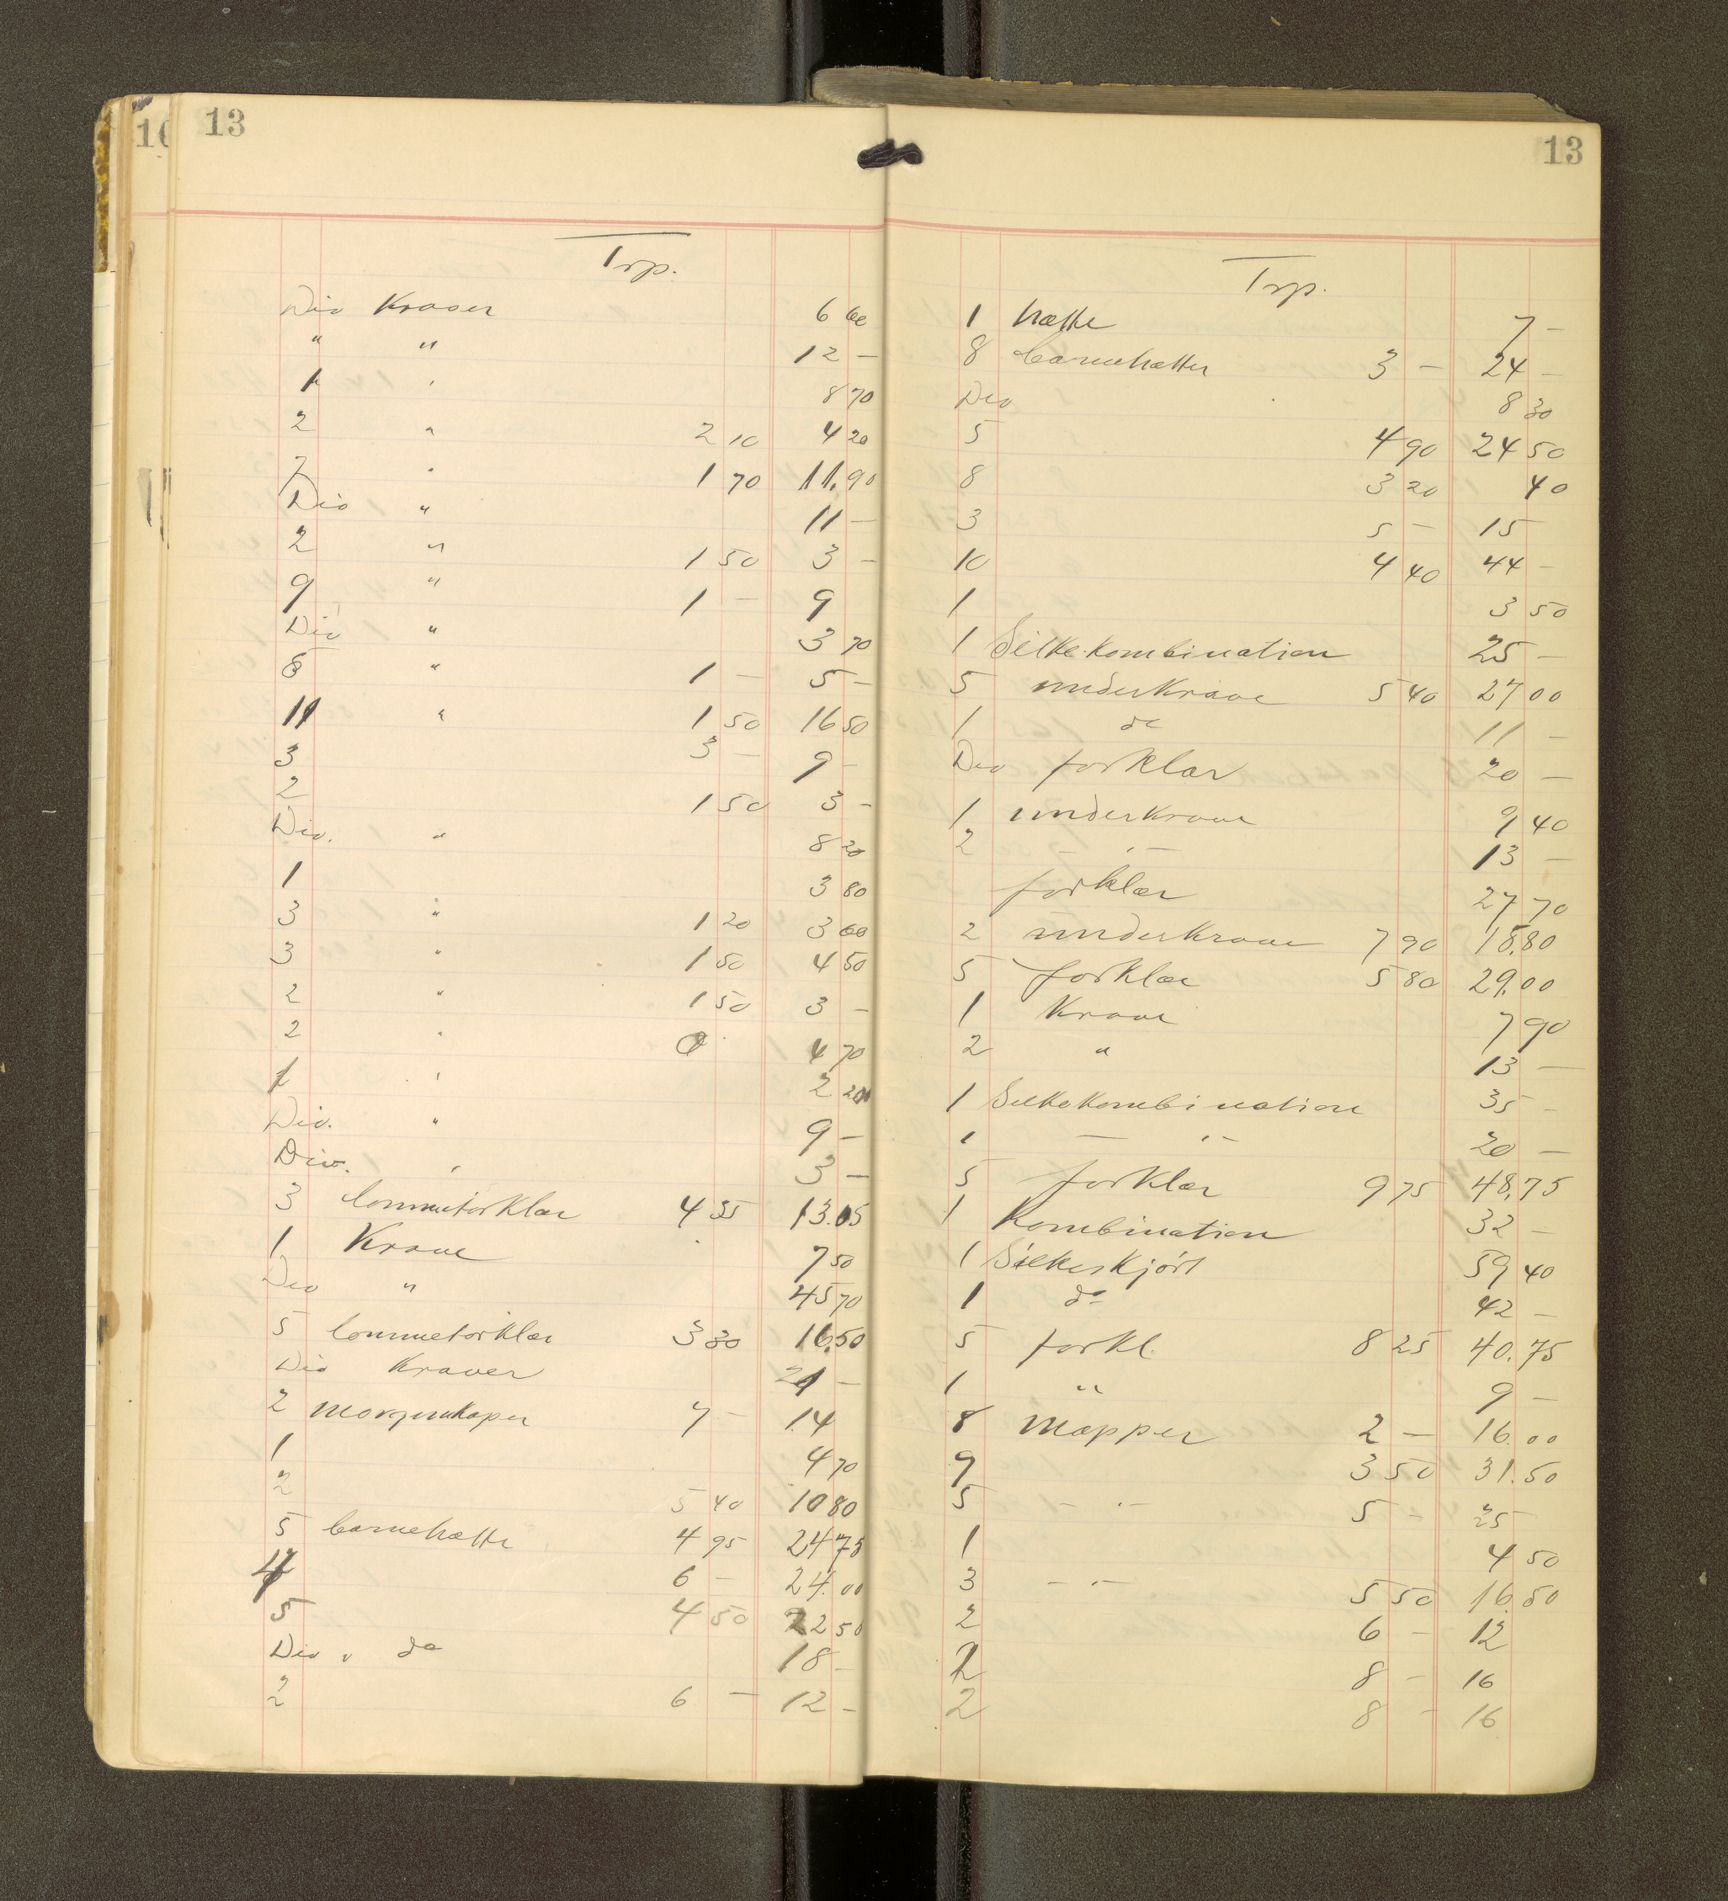 13
Trp.
Div Kraver 6 60
" " 12 —
1 " 8 70
2 " 2 10 4 20
7 " 1 70 11.90
Div " 11 —
2 " 1 50 3 —
9 " 1 — 9
Div " 3 70
5 " 1 — 5 —
11 " 1 50 16 50
3 3 — 9 —
2 1 50 3 —
Div. " 8 20
1 3 80
3 " 1 20 3 60
3 " 1 50 4 50
2 " 1 50 3 —
2 " 4 70
1 " 2 20
Div. " 9 —
Div. " 3 —
3 lommeforklær 4 35 13.05
1 Krave 7 50
Div " 45 70
5 lommeforklær 3 30 16.50
Div Kraver 21 —
2 Morgenkaper 7 — 14
1 4 70
2 5 40 10 80
5 barnehætte 4 95 24 75
4 6 — 24.00
5 4 50 22 50
Div " do 18 —
2 6 — 12 —
13
Trp.
1 hætte 7 —
8 barnehætter 3 — 24 —
Div 8 30
5 4 90 24 50
8 3 20 40
3 5 — 15
10 4 40 44 —
1 3 50
1 Silkekombination 25 —
5 underkrave 5 40 27 00
1 do 11 —
Div forklær 20 —
1 underkrave 9 40
2 — " — 13 —
forklær 27 70
2 underkrave 7 90 15.80
5 forklær 5 80 29.00
1 Krave 7 90
2 " 13 —
1 Silkekombination 35 —
1 — " — 20 —
5 forklær 9 75 48.75
1 Kombination 32 —
1 Silkeskjørt 59 40
1 do 42 —
5 forkl. 8 25 40.75
1 " 9 —
8 Mapper 2 — 16.00
9 3 50 31.50
5 — " — 5 — 25
1 4 50
3 — " — 5 50 16.50
2 6 — 12
2 8 — 16
2 8 — 16